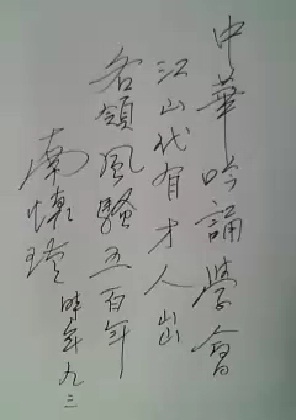 中華吟誦學會
江山代有才人出
各領風騷五百年
南懷瑾
時年九三